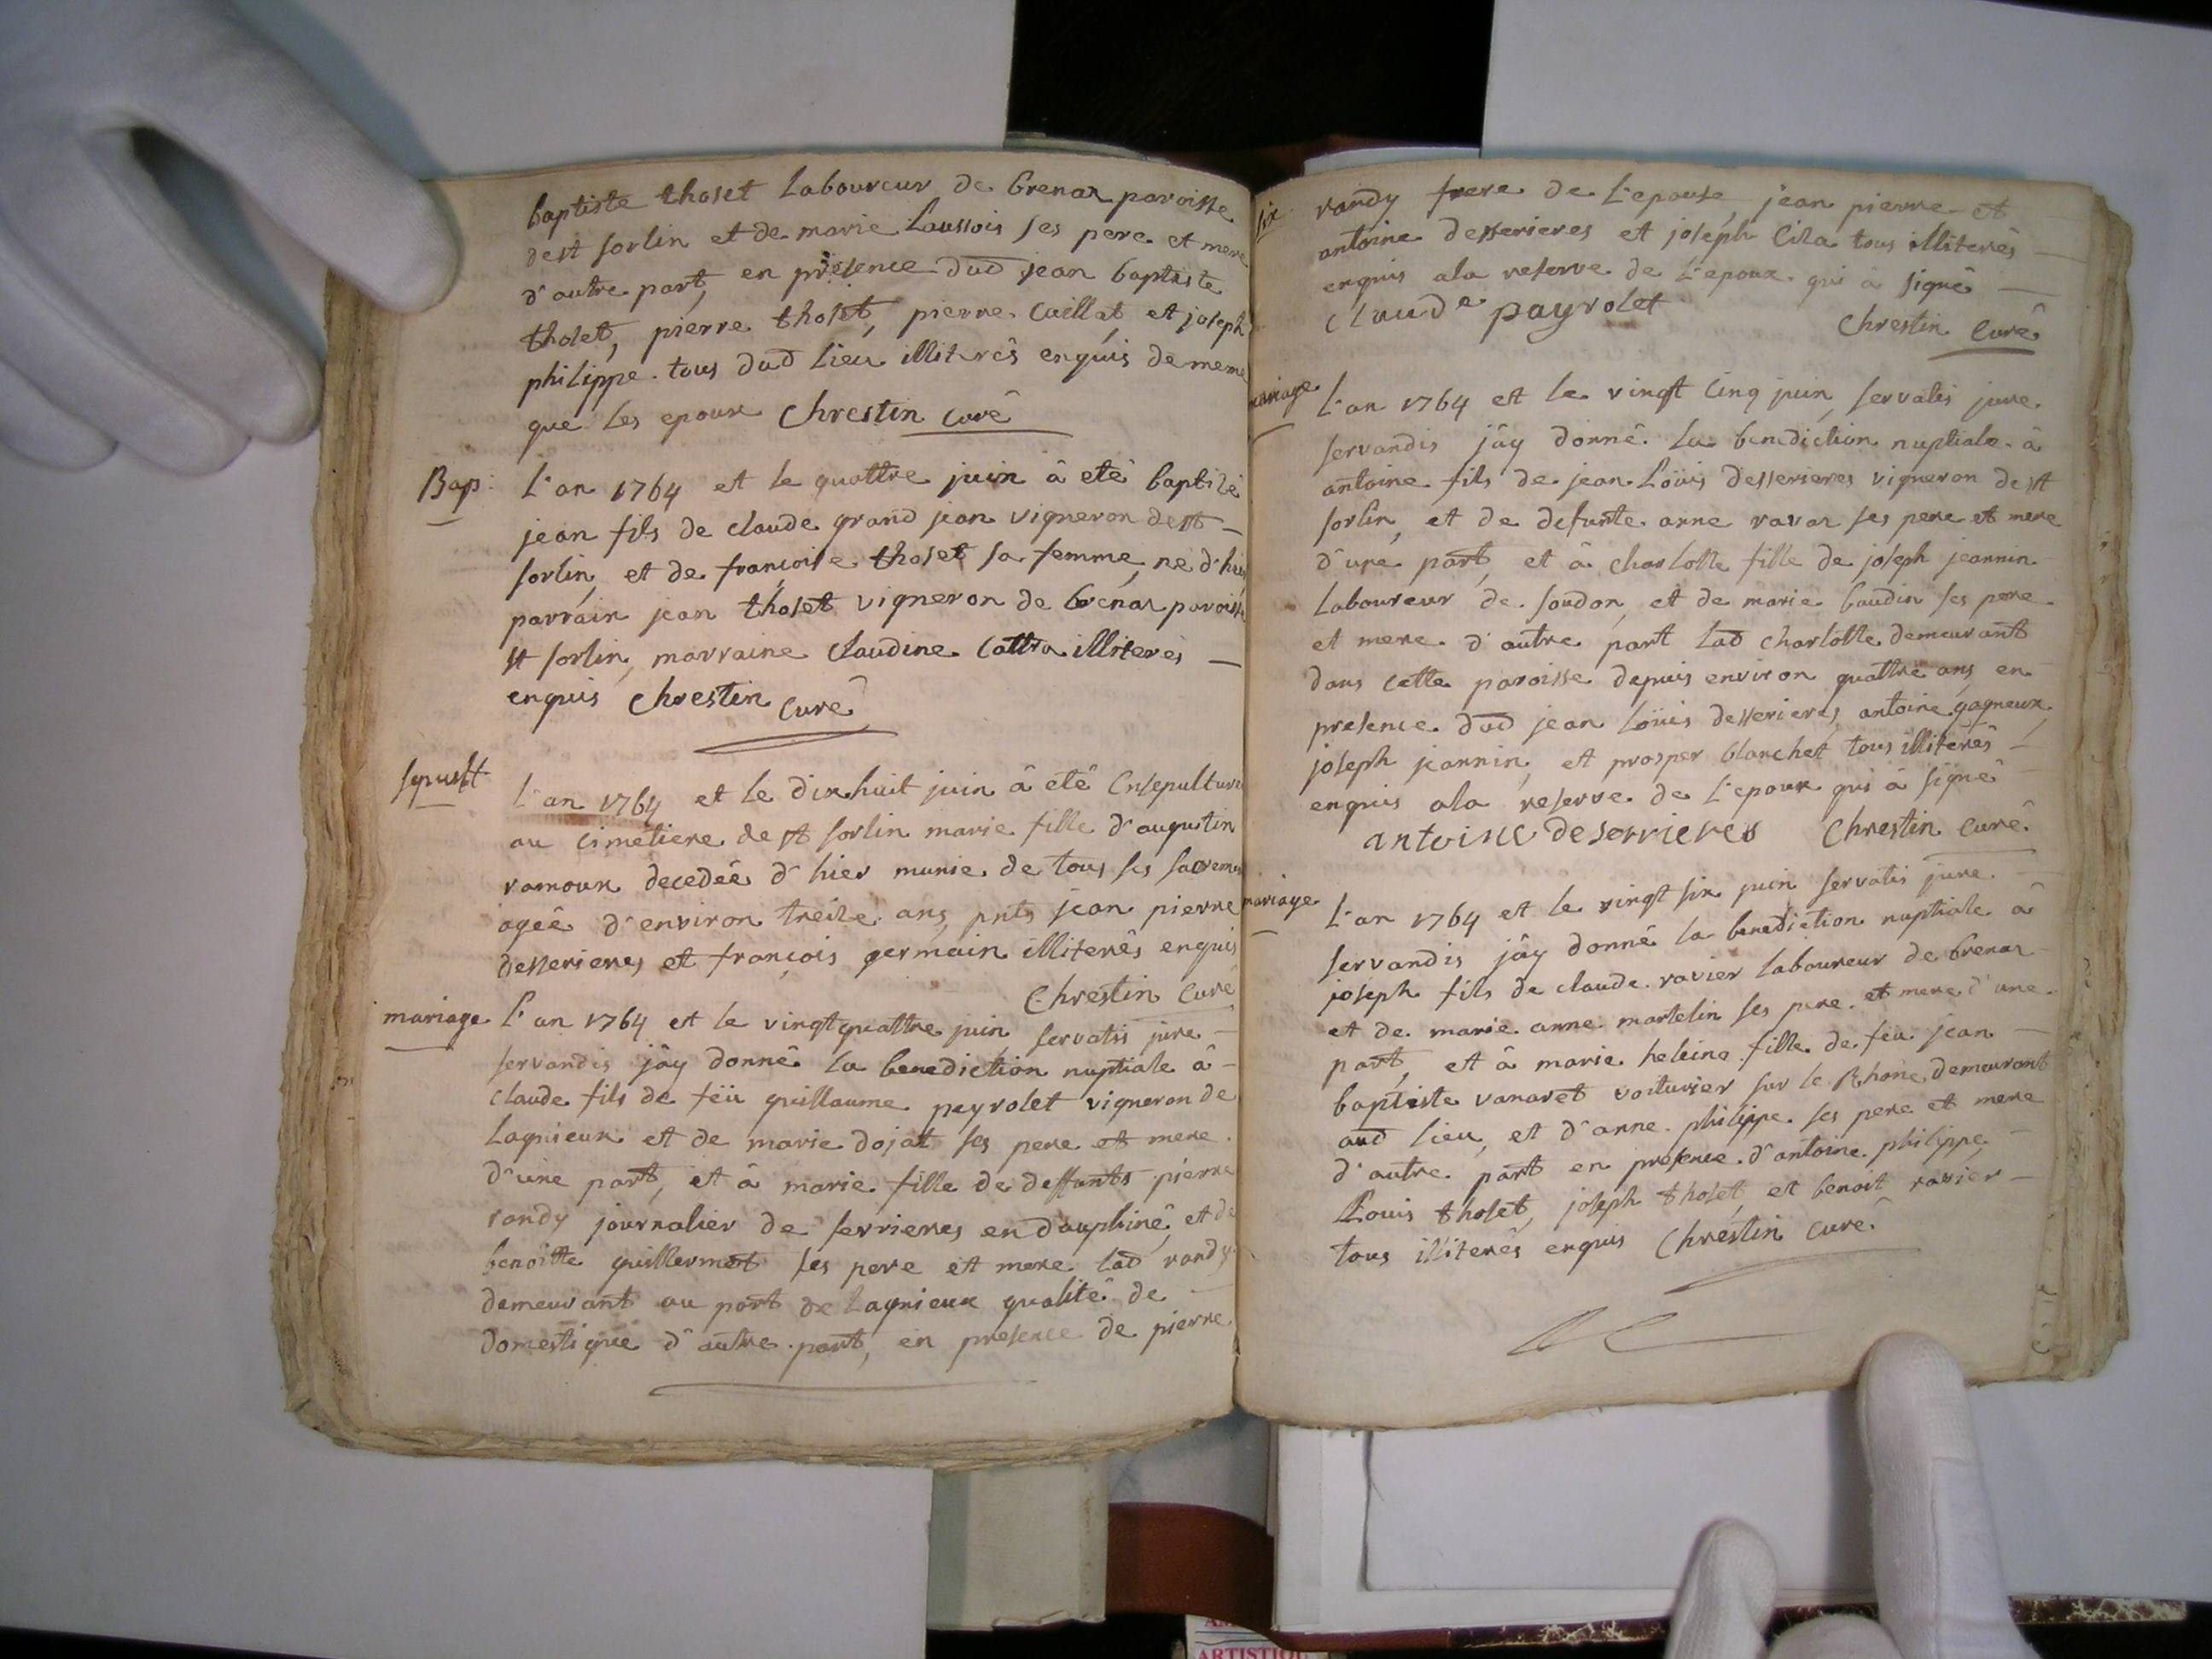 baptiste tholet laboureur de brenaz paroisse
de st sorlin et de marie laussois ses pere et mere
d'autre part, en presence dud jean baptiste
tholet, pierre tholet, pierre caillat, et joseph
philippe tous dud lieu illiterês enquis de meme
que les epoux Chrestin curê
Bap: L'an 1764 et le quattre juin â etê baptisé
jean fils de claude grand jean vigneron de st
sorlin, et de francoise tholet sa femme, né d'hier
parrain jean tholet vigneron de brenaz paroisse
st sorlin, marraine claudine cattra illiterês
enquis Chrestin curê
sepult L'an 1764 et le dix huit juin â etê ensepulturé
au cimetiere de st sorlin marie fille d'augustin
ramoux decedée d'hier munie de tous ses sacremen
ageê d'environ treize ans, pnts jean pierre
desserieres et françois germain illiterês enquis
Chrestin curê
mariage L'an 1764 et le vingt quattre juin servatis jure
servandis jây donnê la benediction nuptiale â
claude fils de feü guillaume peyrolet vigneron de
lagnieux et de marie dojat ses pere et mere
d'une part, et â marie fille de deffunts pierre
randy journalier de serrieres en dauphinê, et de
benoitte guillermet ses pere et mere lad randy
demeurant au port de lagnieux qualitê de
domestique d'autre part, en presence de pierre
randy frere de l'epouse, jean pierre et
antoine desserieres et joseph cila tous illiterês
enquis ala reserve de l'epoux qui â signê
claude payrolet
Chrestin curê
mariage L'an 1764 et le vingt cinq juin, servatis jure
servandis jây donnê la benediction nuptiale â
antoine fils de jean loüis desserieres vigneron de st
sorlin, et de defunte anne ravaz ses pere et mere
d'une part, et â charlotte fille de joseph jeannin
laboureur de soudon, et de marie baudin ses pere
et mere d'autre part lad charlotte demeurant
dans cette paroisse depuis environ quattre ans, en
presence dud jean loüis desserieres, antoine gagneux,
joseph jeannin, et prosper blanchet tous illiterês
enquis ala reserve de l'epoux qui â signê
antoine deserrieres Chrestin curê
mariage L'an 1764 et le vingt six juin servatis jure
servandis jây donnê la benediction nuptiale â
joseph fils de claude ravier laboureur de brenaz
et de marie anne martelin ses pere et mere d'une
part, et â marie heleine fille de feu jean
baptiste vanaret voiturier sur le Rhône demeurant
aud lieu, et d'anne philippe ses pere et mere
d'autre part en presence d'antoine philippe,
Louis tholet, joseph tholet, et benoit ravier
tous illiterês enquis Chrestin curê